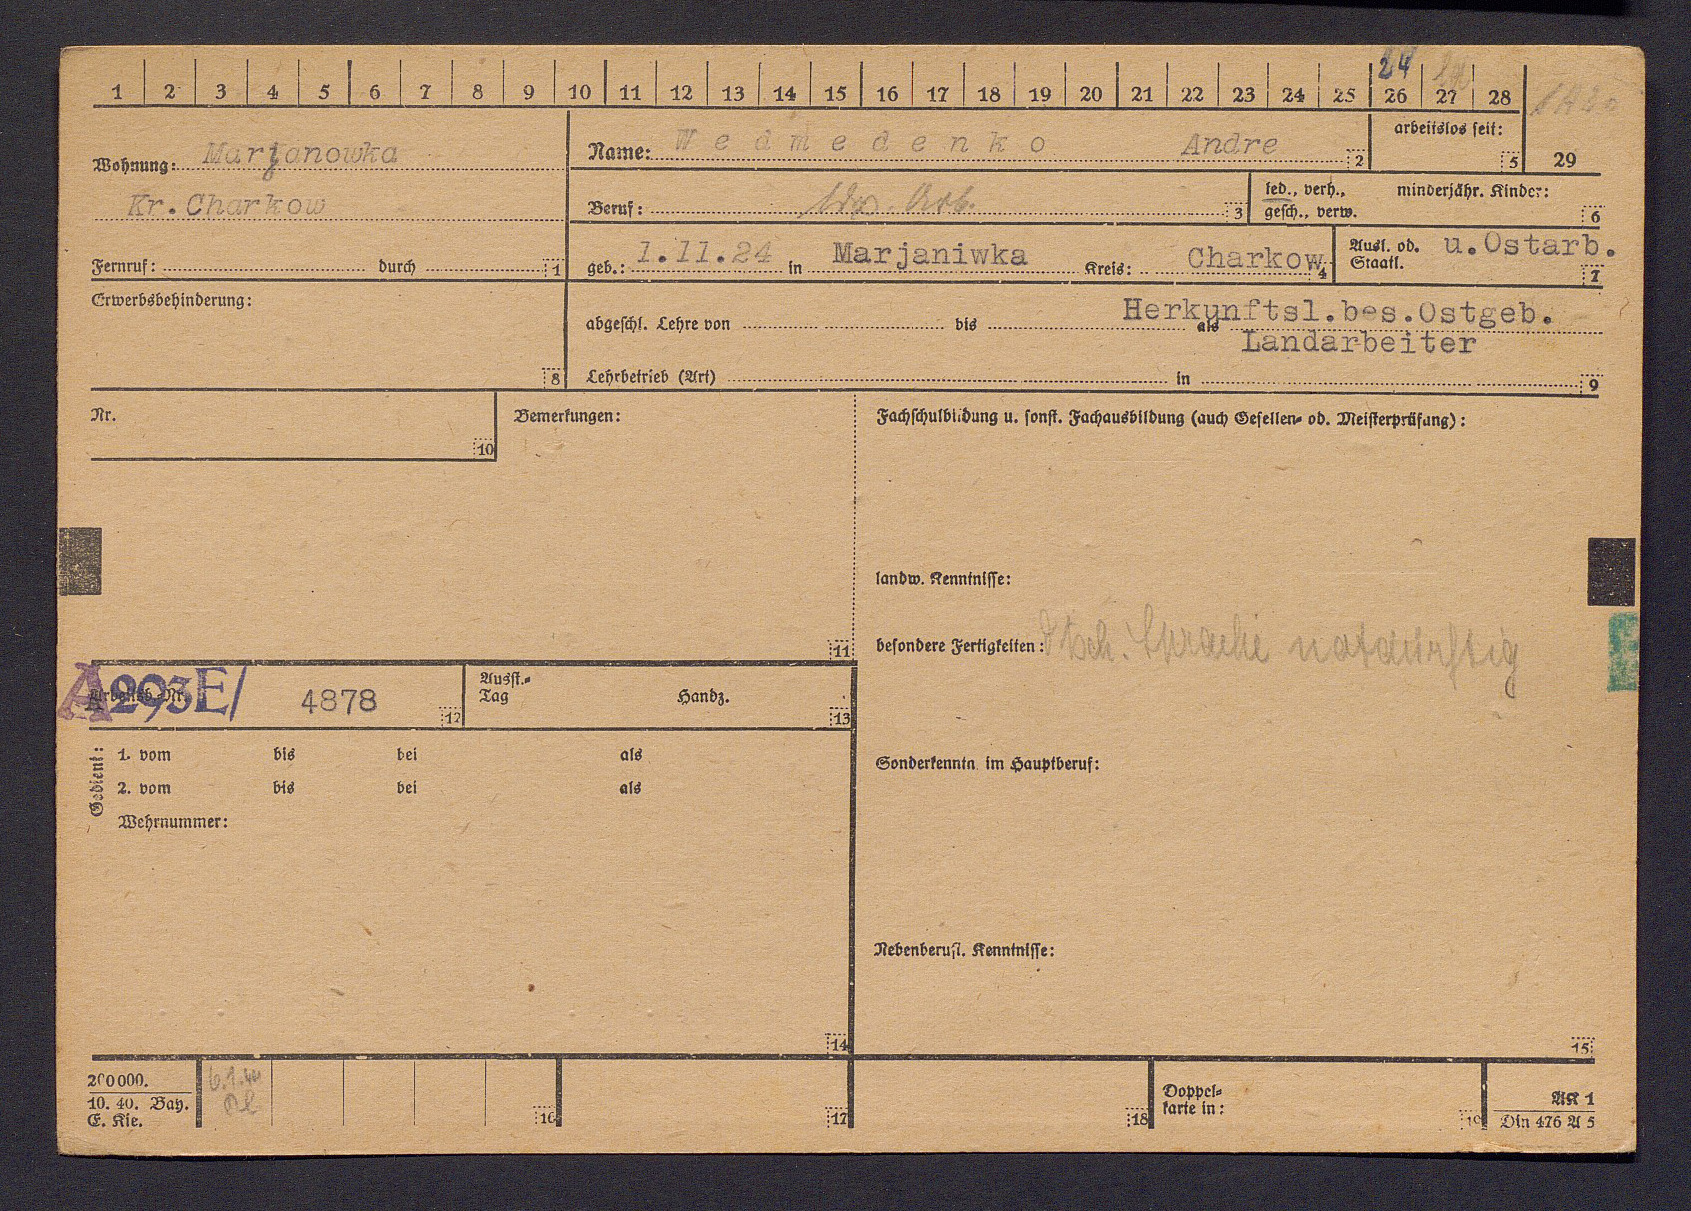 24
1 2 3 4 5 6 7 8 9 10 11 12 13 14 15 16 17 18 19 20 21 22 23 24 25 26 27 28
Wohnung: Marjanowka
Kr. Charkow
Fernruf: durch 1
Name: Wedmedenko Andre 2
arbeitslos seit: 5
29
Beruf: Arb. 3
led., verh., minderjähr. Kinder:
gesch., verw. 6
geb.: 1.11.24 in Marjaniwka Kreis: Charkow 4
Ausl. od. u. Ostarb.
Staatl. 7
Erwerbsbehinderung:
8
Herkunftsl.bes.Ostgeb.
abgeschl. Lehre von bis als
Landarbeiter
Lehrbetrieb (Art) in 9
Nr.
10
Bemerkungen:
11
Fachschulbildung u. sonst. Fachausbildung (auch Gesellen- od. Meisterprüfung):
landw. Kenntnisse:
besondere Fertigkeiten: Dtsch. Sprache notdürftig
Sonderkenntn. im Hauptberuf:
Nebenberufl. Kenntnisse:
15
Arbeitsb.-Nr. A 293E/ 4878 12
Ausst.-
Tag Handz. 13
Gedient:
1. vom bis bei als
2. vom bis bei als
Wehrnummer:
14
200000.
10. 40. Bay.
E. Kie.
6.1.44
16 17 18
Doppel-
karte in: 19
AK 1
Din 476 A 5